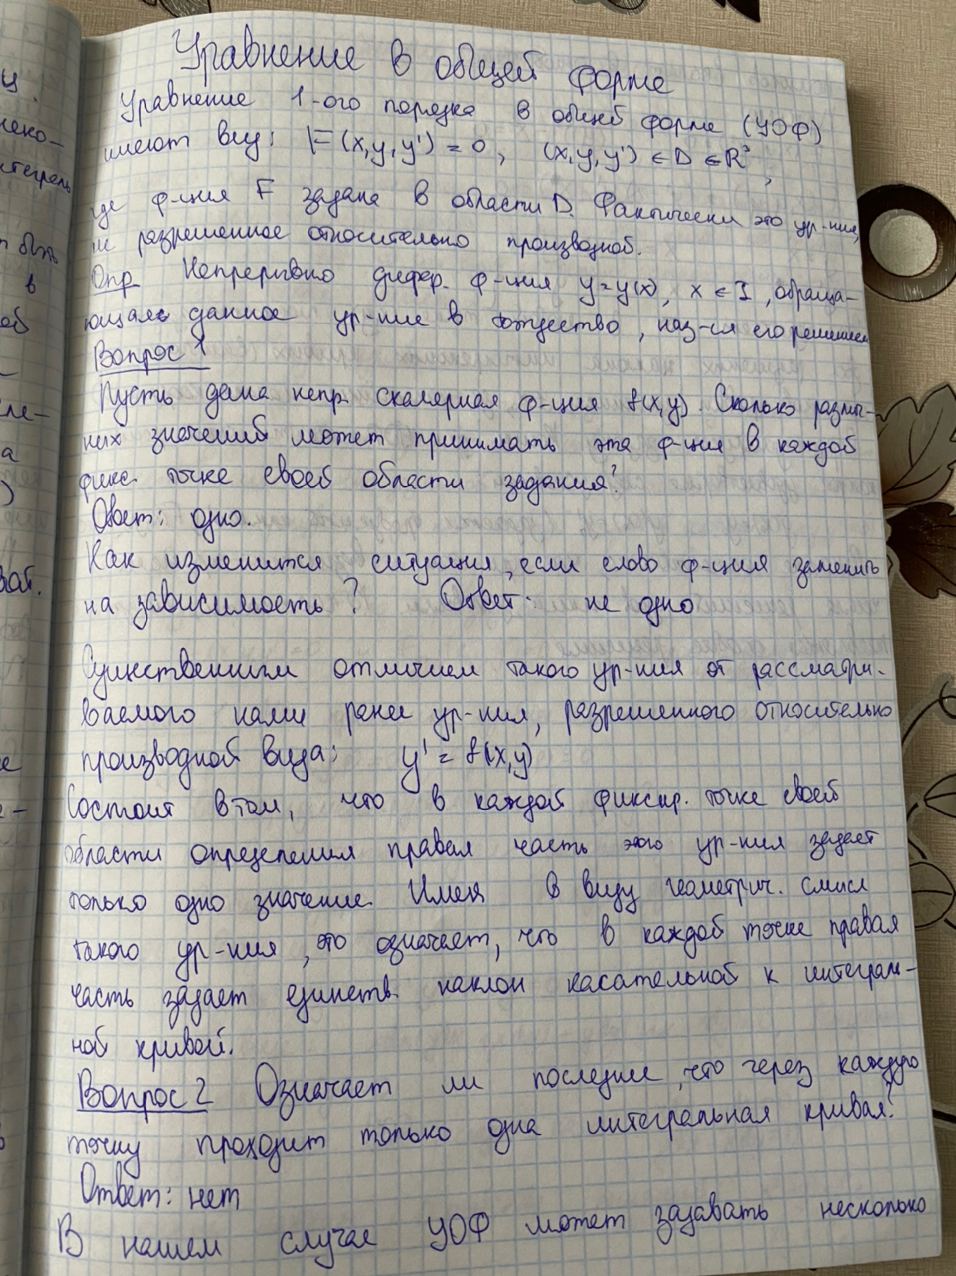 Уравнение в общей форме
Уравнение 1-ого порядка в общей форме (УОФ)
имеют вид: F(x,y,y') = 0, (x,y,y') ∈ D ∈ R³,
где ф-ция F задана в области D. Фактически это ур-ния,
не разрешенное относительно производной.
Опр Непрерывно дифер. ф-ция y=y(x), x ∈ I, обраща-
ющаяся данное ур-ние в тождество, наз-ся его решением
Вопрос 1
Пусть дана непр. скалярная ф-ция f(x,y) Сколько различ-
ных значений может принимать эта ф-ция в каждой
фикс. точке своей области задания?
Ответ: одно.
Как изменится ситуация, если слово ф-ция заменить
на зависимость? Ответ: не одно
Существенным отличием такого ур-ния от рассматри-
ваемого нами ранее ур-ния, разрешенного относительно
производной вида: y' = f(x,y)
Состоит в том, что в каждой фиксир. точке своей
области определения правая часть этого ур-ния задает
только одно значение. Имея в виду геометрич. смысл
такого ур-ния, это означает, что в каждой точке правая
часть задает единств. наклон касательной к интеграль-
ной кривой.
Вопрос 2 Означает ли последнее, что через каждую
точку проходит только одна интегральная кривая?
Ответ: нет
В нашем случае УОФ может задавать несколько